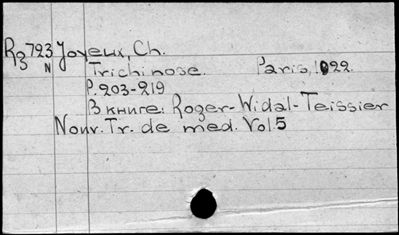 Rz 723 Joyeux, Ch.
N
Trichinose. Paris, 1922.
P. 203-219
В книге: Roger-Widal-Teissier
Nouv. Tr. de med. Vol. 5